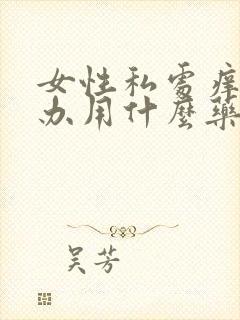 女性私处痒
办用什麼藥
吴芳